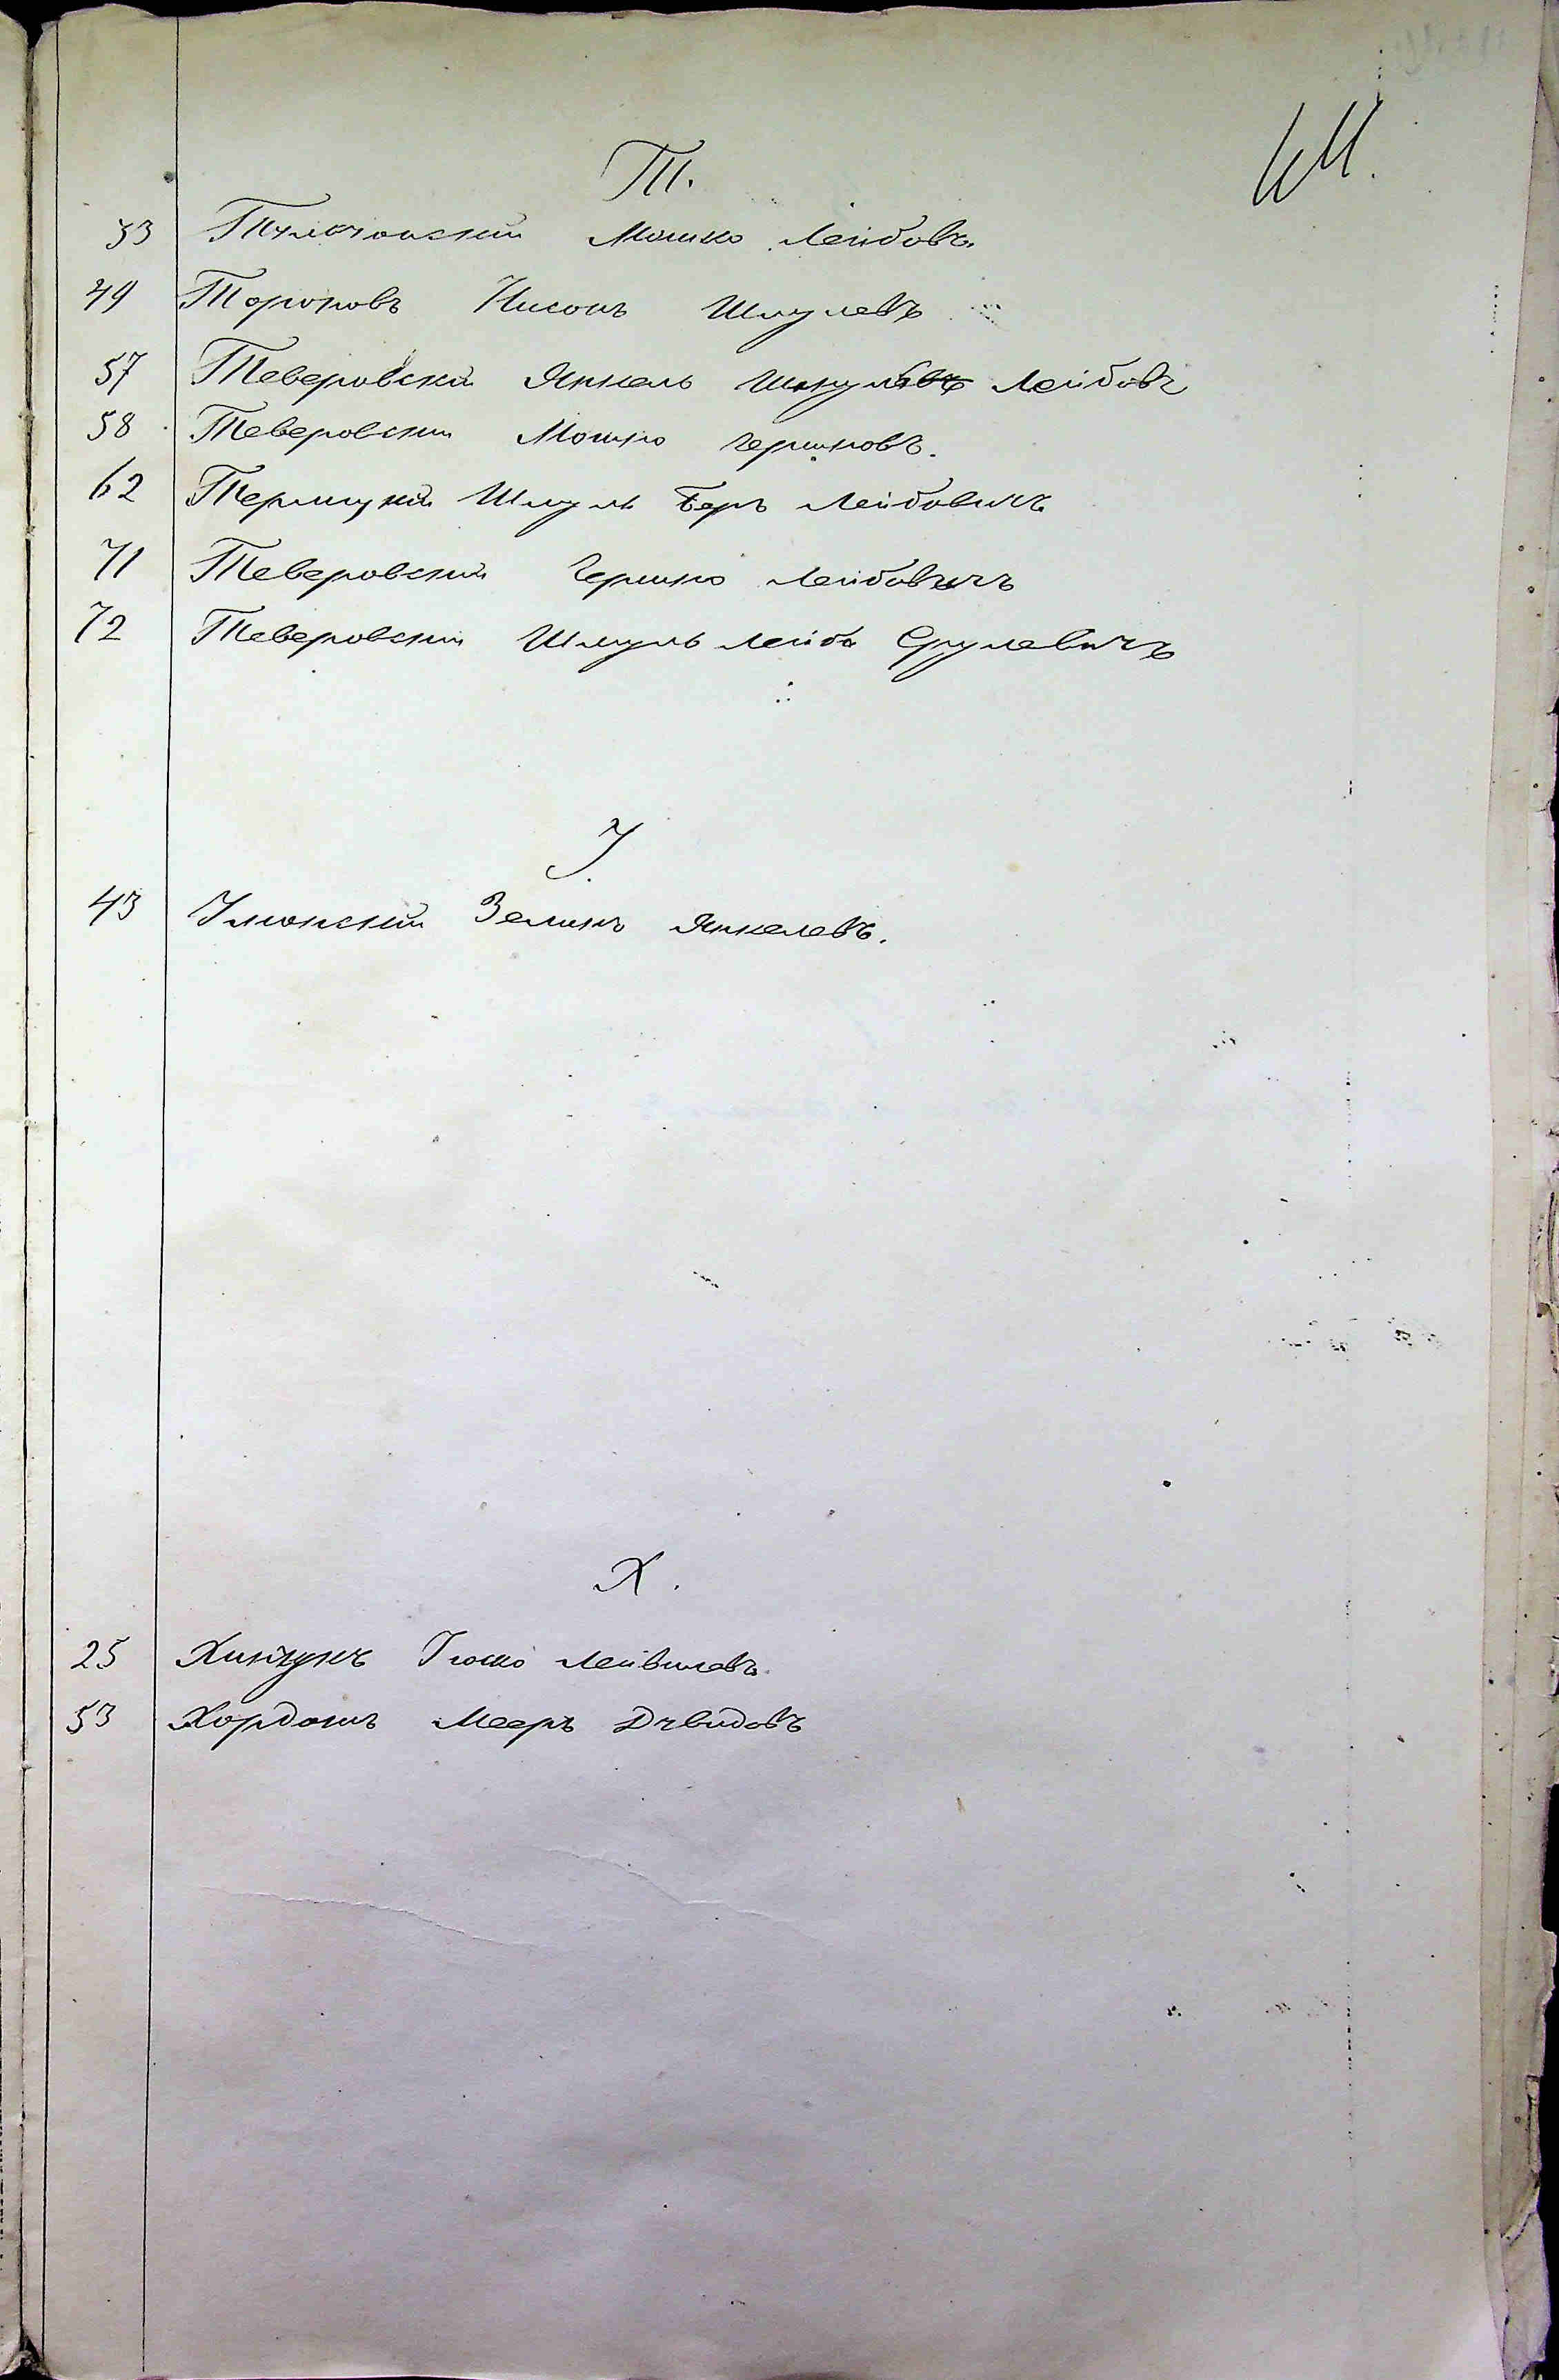 Т.
33 Мошко Лейбовъ
49 Тороповъ Нисонъ Шмулевъ
57 Теверовскій Янкель Шмулевъ Лейбовъ
58 Теверовскій Мошко Гершковъ.
62 Шмуль Беръ Лейбовичъ
71 Теверовскій Гершко Лейбовичъ
72 Теверовскій Шмуль Лейба Срулевичъ
У
43 Уманскій Зельикъ Янкелевъ.
Х.
25 Лейвиковъ
53 Хорданъ Мееръ Давидовъ